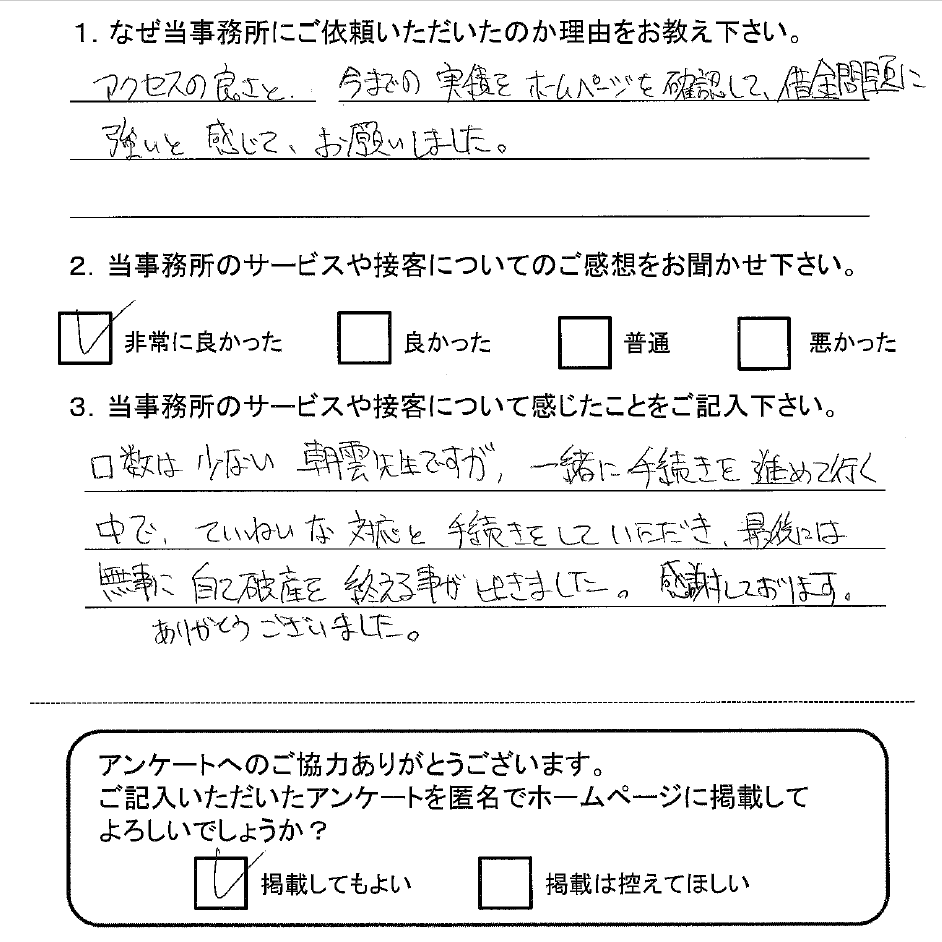 1. なぜ当事務所にご依頼いただいたのか理由をお教え下さい。
アクセスの良さと、今までの実績をホームページを確認して、借金問題に
強いと感じて、お願いしました。
2. 当事務所のサービスや接客についてのご感想をお聞かせ下さい。
非常に良かった 良かった 普通 悪かった
3. 当事務所のサービスや接客について感じたことをご記入下さい。
口数は少ない朝雲先生ですが、一緒に手続きを進めて行く
中で、ていねいな対応と手続きをしていただき、最後には
無事に自己破産を終える事が出きました。感謝しております。
ありがとうございました。
アンケートへのご協力ありがとうございます。
ご記入いただいたアンケートを匿名でホームページに掲載して
よろしいでしょうか？
掲載してもよい 掲載は控えてほしい